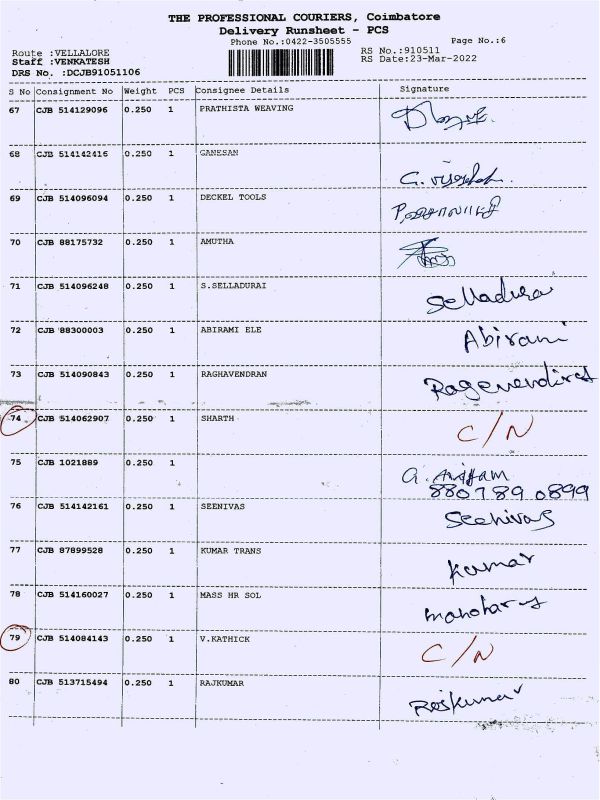 THE PROFESSIONAL COURIERS, Coimbatore
Delivery Runsheet - PCS
Phone No.:0422-3505555 Page No.:6
Route :VELLALORE RS No.:910511
Staff :VENKATESH RS Date:23-Mar-2022
DRS No. :DCJB91051106
S No Consignment No Weight PCS Consignee Details Signature
67 CJB 514129096 0.250 1 PRATHISTA WEAVING
68 CJB 514142416 0.250 1 GANESAN
69 CJB 514096094 0.250 1 DECKEL TOOLS
70 CJB 88175732 0.250 1 AMUTHA
71 CJB 514096248 0.250 1 S.SELLADURAI Selladurai
72 CJB 88300003 0.250 1 ABIRAMI ELE Abirami
73 CJB 514090843 0.250 1 RAGHAVENDRAN
74 CJB 514062907 0.250 1 SHARTH C/N
75 CJB 1021889 0.250 1
880789 0899
76 CJB 514142161 0.250 1 SEENIVAS Seenivas
77 CJB 87899528 0.250 1 KUMAR TRANS Kumar
78 CJB 514160027 0.250 1 MASS HR SOL
79 CJB 514084143 0.250 1 V.KATHICK C/N
80 CJB 513715494 0.250 1 RAJKUMAR Rajkumar